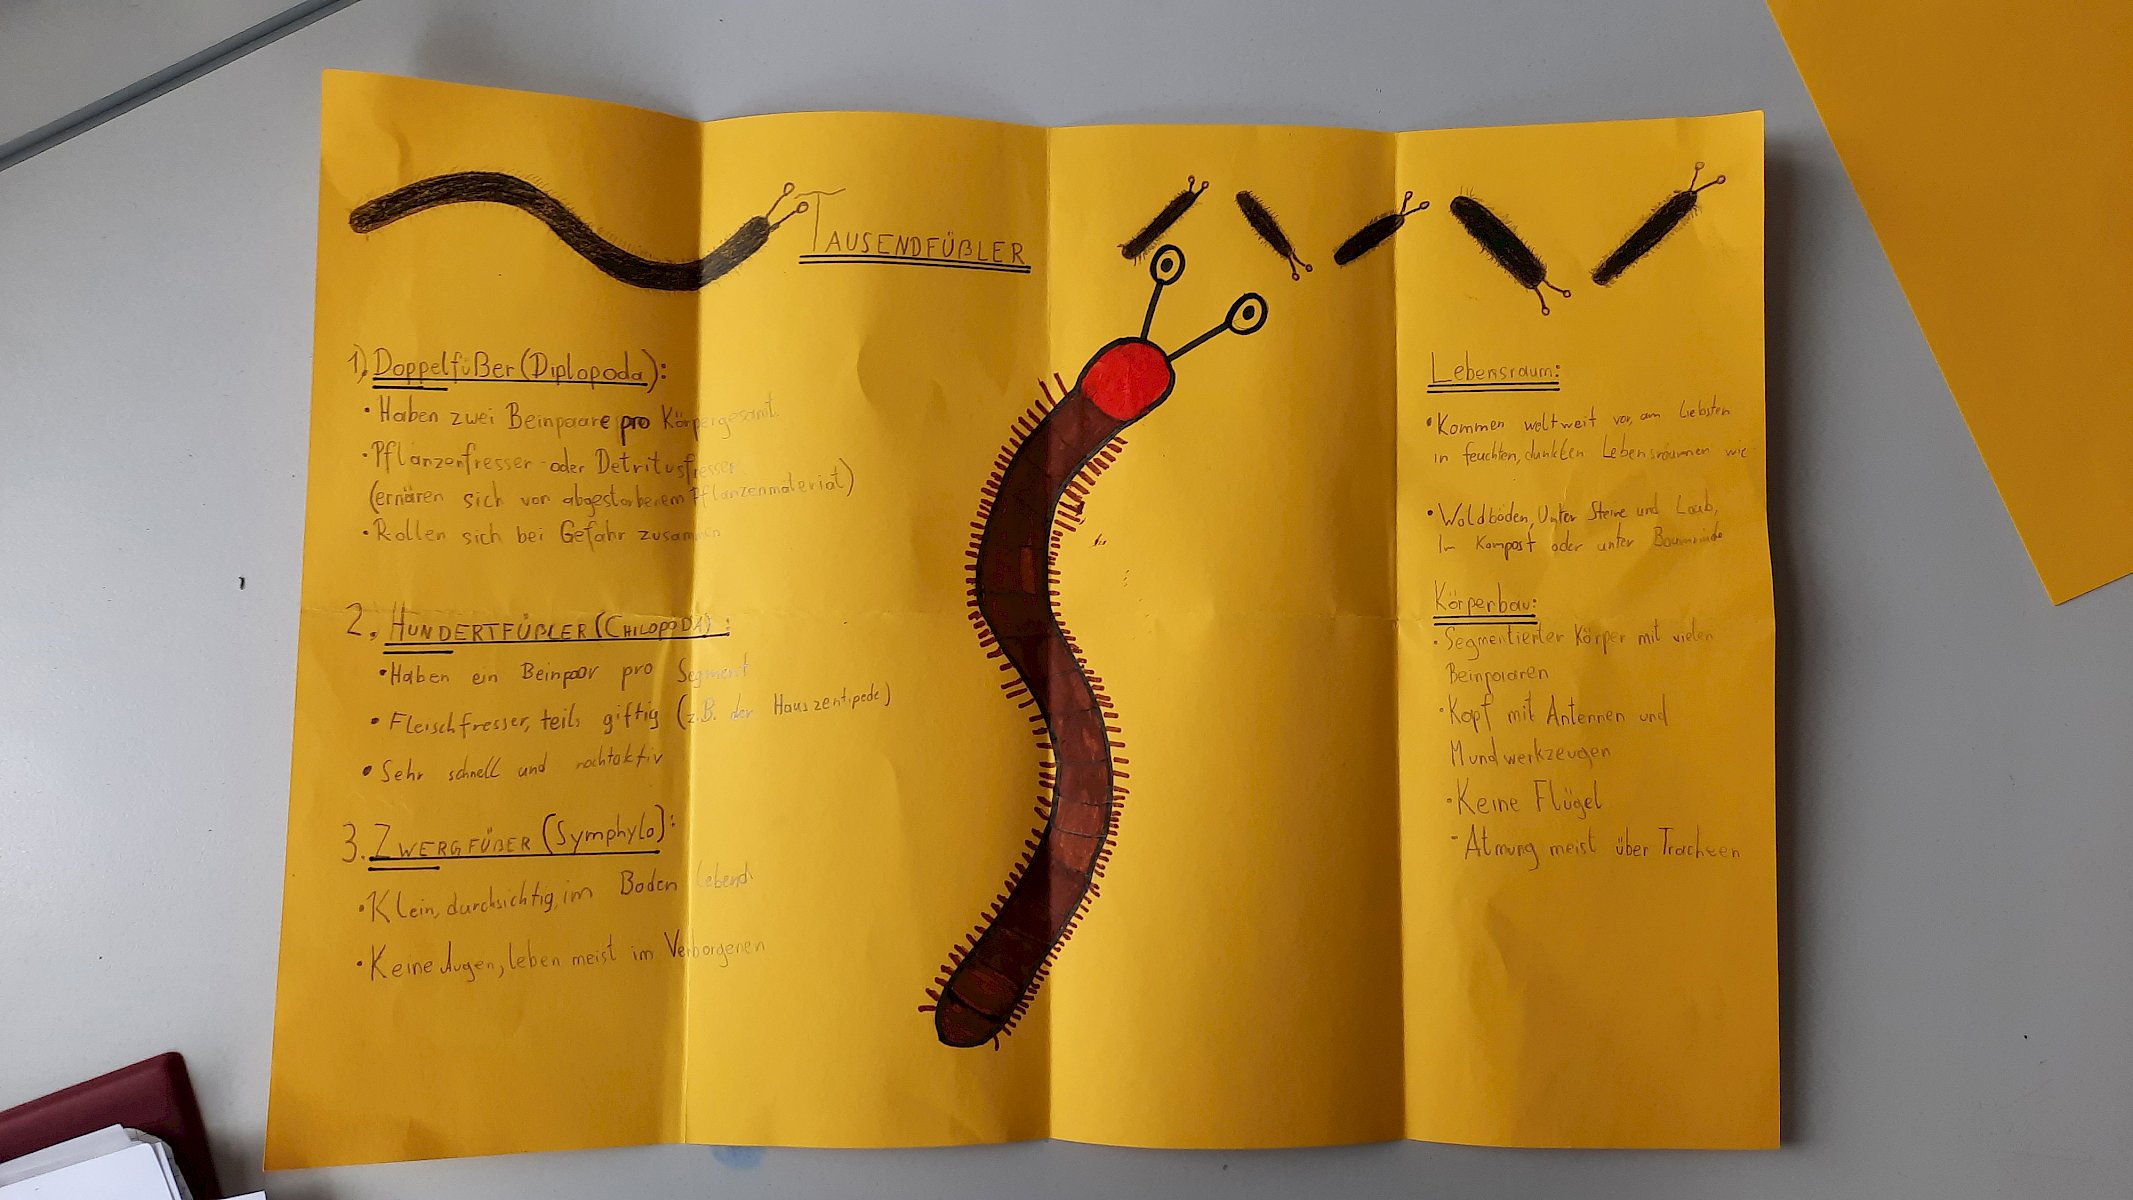 TAUSENDFÜßLER
1). Doppelfüßer (Diplopoda):
• Haben zwei Beinpaare pro Körpergesamt.
• Pflanzenfresser oder Detritusfresser
(ernären sich von abgestorbenem Pflanzenmaterial)
• Rollen sich bei Gefahr zusammen
2. HUNDERTFÜßLER (CHILOPODA):
• Haben ein Beinpaar pro Segment
• Fleischfresser, teils giftig (z.B. der Hauszentipede)
• Sehr schnell und nachtaktiv
3. ZWERGFÜßER (Symphyla):
• Klein, durchsichtig, im Boden lebend
• Keine Augen, leben meist im Verborgenen
Lebensraum:
• Kommen weltweit vor, am liebsten
in feuchten, dunklen Lebensräumen wie
• Waldböden, Unter Steine und Laub,
Im Kompost oder unter Baumrinde
Körperbau:
• Segmentierter Körper mit vielen
Beinpaaren
• Kopf mit Antennen und
Mundwerkzeugen
• Keine Flügel
- Atmung meist über Tracheen